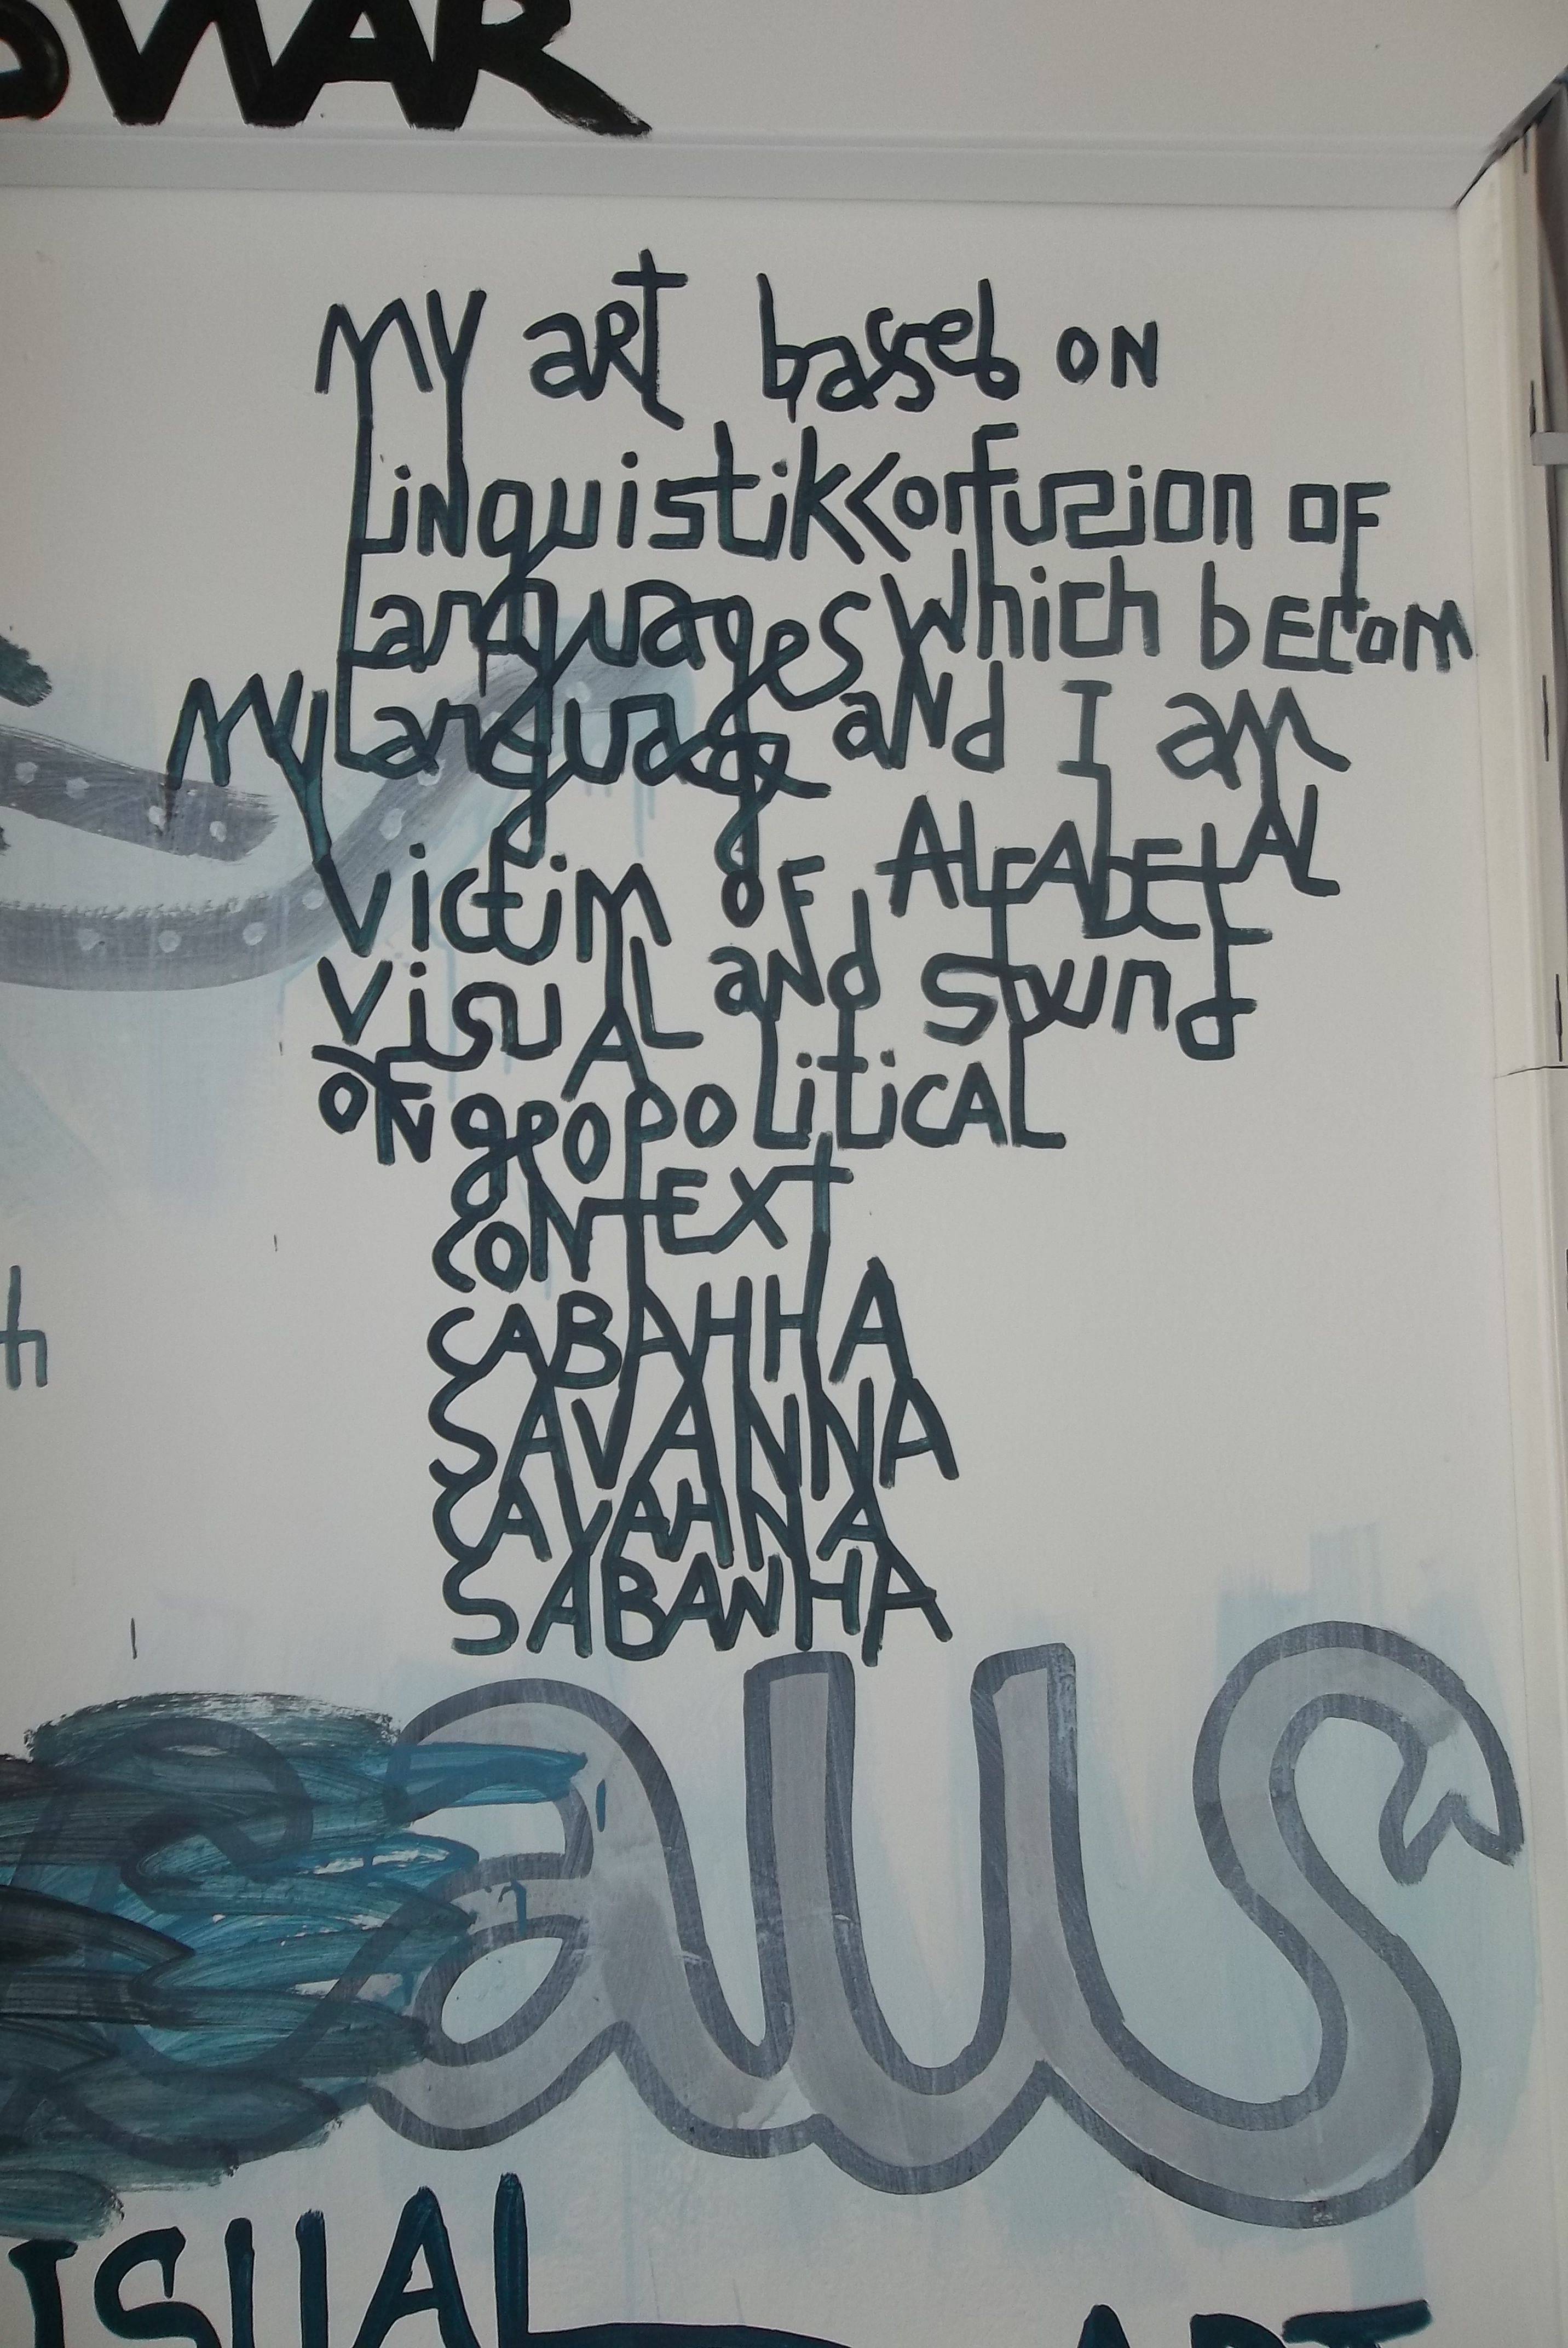 WAR
MY aRt basəd ON
LiNguistik Confuzion OF
Languages Which bECom
MY Language aNd I aM
Victim OF ALFAbEtAL
VisuAL aNd Sound
ON geopoLiticAL
CONTEXT
CABAHHA
SAVANNA
CAVAHNA
SABANHA
th
aus
ISUAL ART